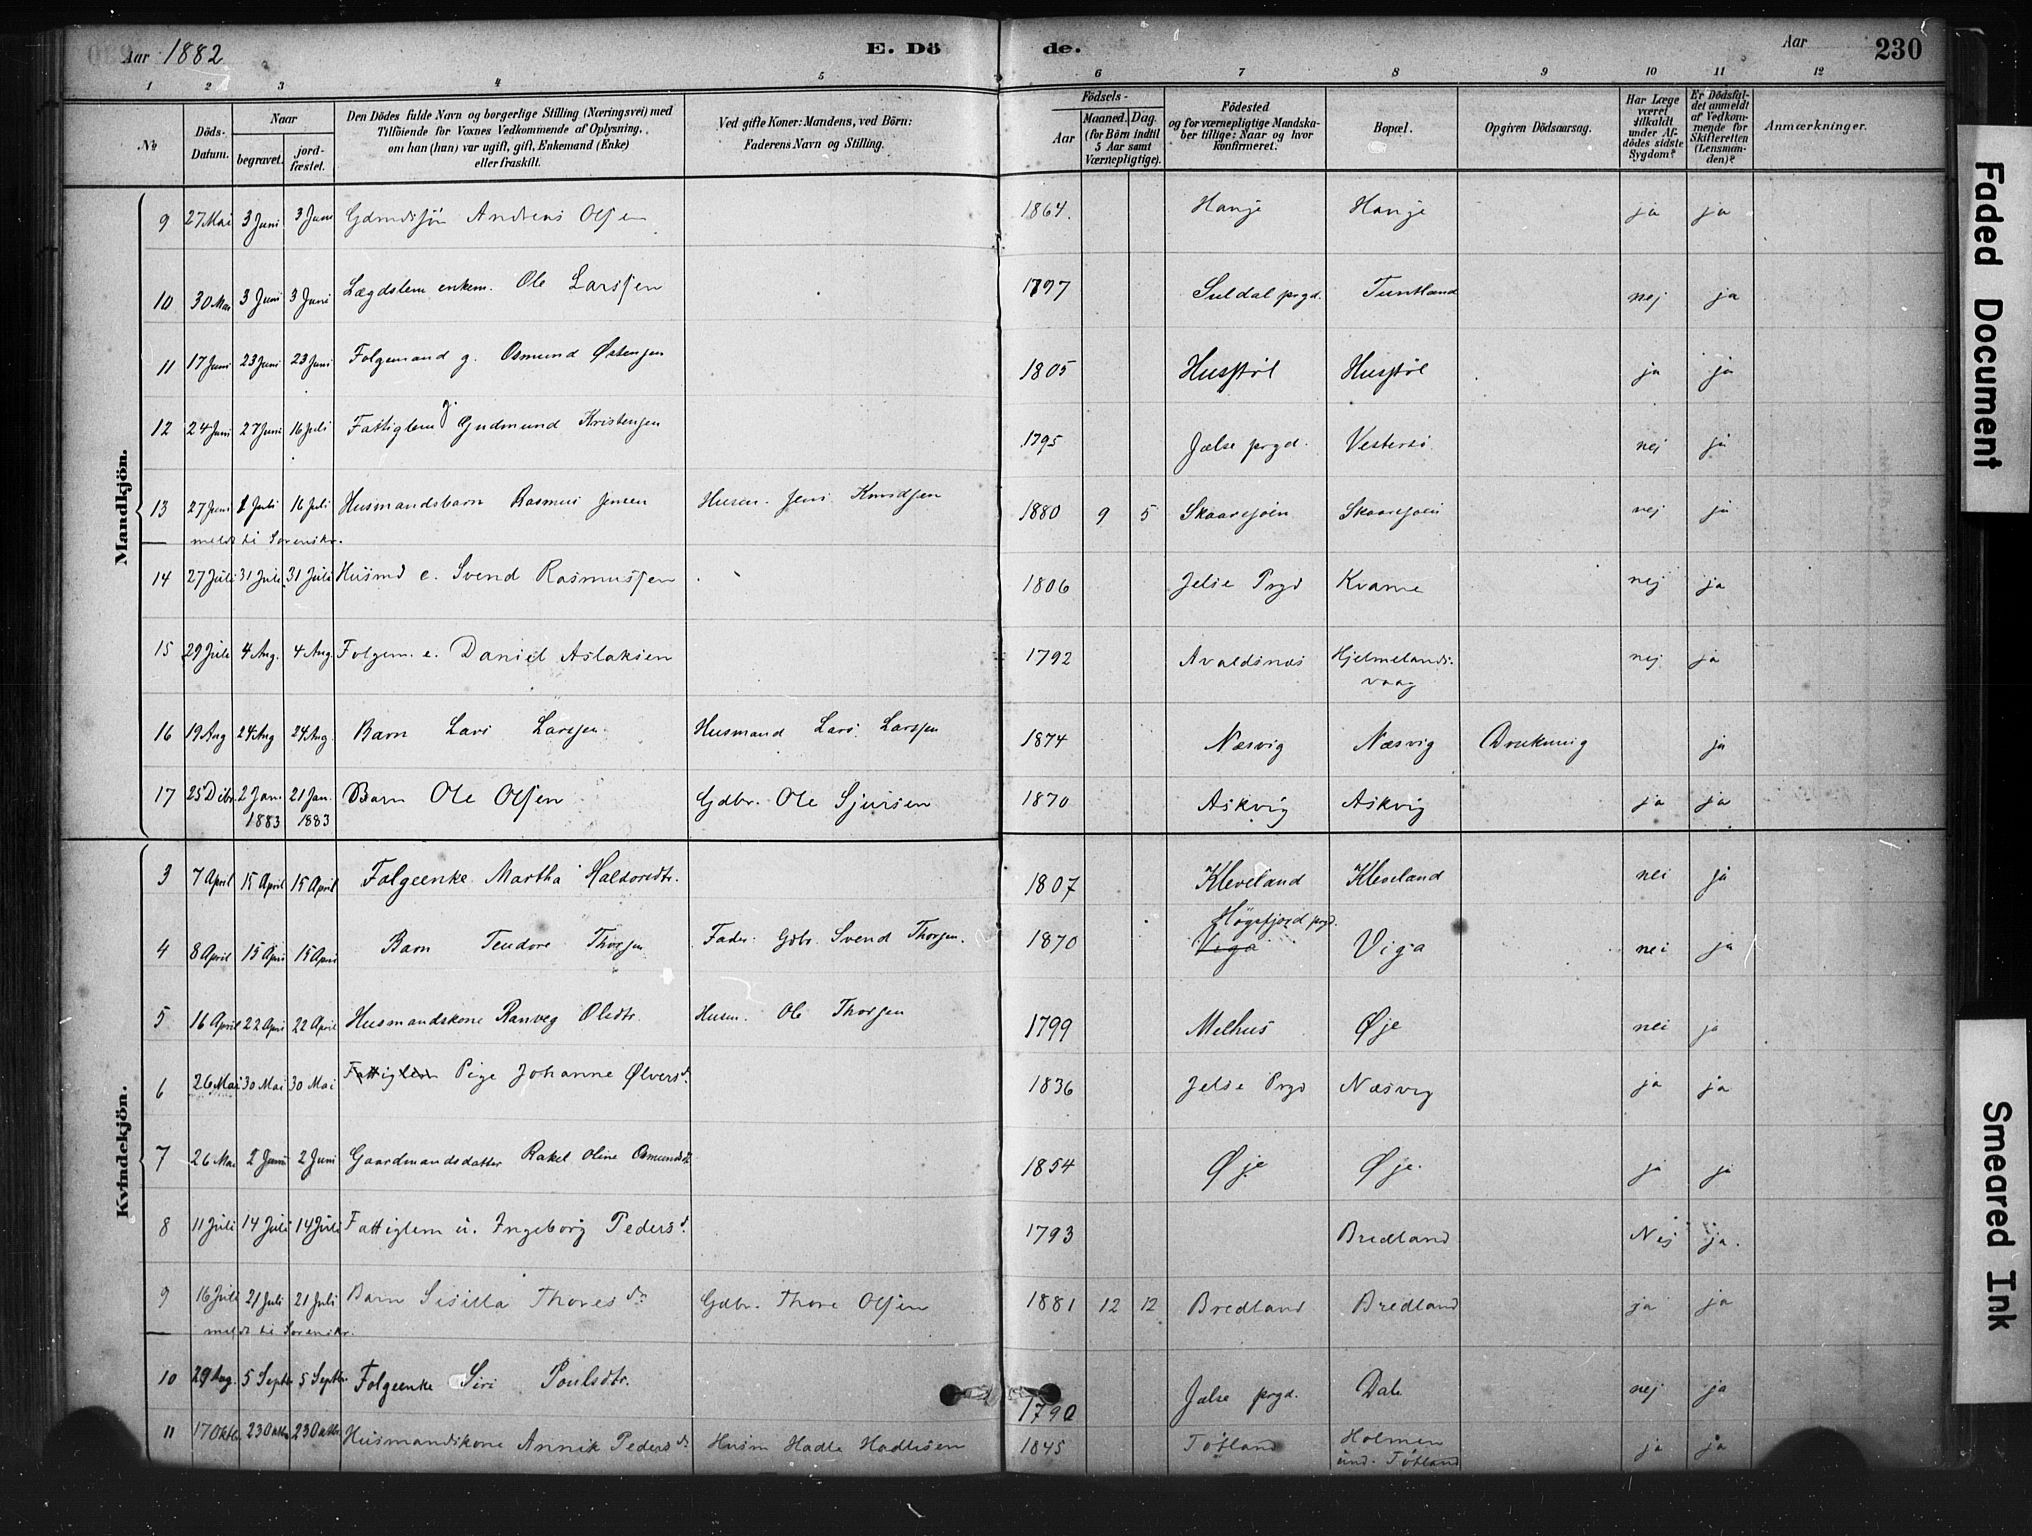 Aar 1882 E. Dö de. Aar 230
1 2 3 4 5 6 7 8 9 10 11 12
№ Döds-Datum. Naar begravet. jord-fæstet. Den Dödes fulde Navn og borgerlige Stilling (Næringsvei) med Tilföiende for Voxnes Vedkommende af Oplysning, om han (hun) var ugift, gift, Enkemand (Enke) eller fraskilt. Ved gifte Koner: Mandens, ved Börn: Faderens Navn og Stilling. Födsels- Aar Maaned. Dag. (for Börn indtil 5 Aar samt Værnepligtige). Födested og for værnepligtige Mandskaber tillige: Naar og hvor konfirmeret. Bopæl. Opgiven Dödsaarsag. Har Læge været tilkaldt under Afdödes sidste Sygdom? Er Dödsfaldet anmeldt af Vedkommende for Skifteretten (Lensmanden)? Anmærkninger.
Mandkjön.
9 27 Mai 3 Juni 3 Juni Gdmdssøn Andreas Olsen 1864. Hauje Hauje ja ja
10 30 Mai 3 Juni 3 Juni Lægdslem enkem. Ole Larssen 1797 Suldal prgd. Tuntland nej ja
11 17 Juni 23 Juni 23 Juni Folgemand g. Osmund Østensen 1805 Husstøl Husstøl ja ja
12 24 Juni 27 Juni 16 Juli Fattiglem g Gudmund Kristensen 1795 Jælse prgd. Vestersø nej ja
13 27 Juni 1 Juli 16 Juli Husmandsbarn Rasmus Jensen Husm. Jens Knudsen 1880 9 5 Skaaresøen Skaaresøen nej ja
meldt til Sorenskr.
14 27 Juli 31 Juli 31 Juli Husmd e. Svend Rasmussen 1806 Jelse Prgd Kvame nej ja
15 29 Juli 4 Aug. 4 Aug. Folgem. e. Daniel Aslaksen 1792 Avaldsnæs Hjelmelands- nej ja
vaag
16 19 Aug 24 Aug 24 Aug. Barn Lars Larssen. Husmand Lars Larssen 1874 Næsvig Næsvig Drukning ja
17 25 Dcbr. 2 Jan. 21 Jan. Barn Ole Olsen Gdbr. Ole Sjursen 1870 Askvig Askvig ja ja
1883 1883
Kvindekjön.
3 7 April 15 April 15 April Folgeenke Martha Haldorsdtr. 1807 Kleveland Kleveland nei ja
Høgsfjord prgd.
4 8 April 15 April 15 April Barn Teodore Thorsen Fader. Gdbr. Svend Thorsen. 1870 Viga Viga nei ja
5 16 April 22 April 22 April Husmandskone Ranveg Olsdtr. Husm. Ole Thorsen 1799 Melhus Øje nei ja
6 26 Mai 30 Mai 30 Mai Fattiglem Pige Johanne Ølversd. 1836 Jelse Prgd Næsvig ja ja
7 26 Mai 2 Juni 2 Juni Gaardmandsdatter Rakel Oline Osmundsdt. 1854 Øje Øje. ja ja
8 11 Juli 14 Juli 14 Juli Fattiglem u. Ingeborg Pedersd. 1793 Bredland Nej ja.
9 16 Juli 21 Juli 21 Juli Barn Sisilla Thoresdr. Gdbr. Thore Olsen 1881 12 12 Bredland Bredland ja ja
meldt til Sorenskr.
10 29 Aug. 5 Septbr 5 Septbr. Folgeenke Siri Poulsdtr. 1790 Jælse prgd. Dale nej ja
11 17 Oktbr. 23 Oktbr 23 Oktbr. Husmandskone Annik Pedersdr. Husm Hadle Hadlesen 1845 Tøtland Holmen ja ja
und. Tøtland
Faded Document
Smeared Ink